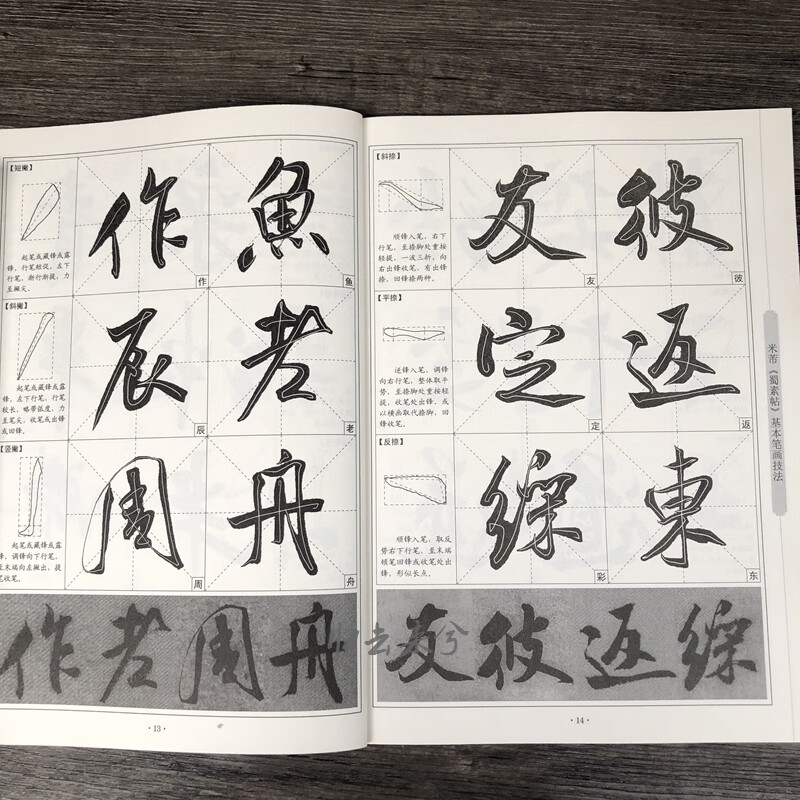 【短撇】
起笔或藏锋或露
锋，行笔短促，左下
行笔，渐行渐提，力
至撇尖。
作 魚
作 鱼
【斜撇】
起笔或藏锋或露
锋，左下行笔，行笔
较长，略带弧度，力
至笔尖，收笔或出锋
或回锋。
辰 老
辰 老
【竖撇】
起笔或藏锋或露
锋，调锋向下行笔，
至末端向左撇出，提
笔收笔。
周 舟
周 舟
作 老 周 舟
·13·
【斜捺】
顺锋入笔，右下
行笔，至捺脚处重按
轻提，一波三折，向
右出锋收笔，有出锋
捺、回锋捺两种。
友 彼
友 彼
【平捺】
逆锋入笔，调锋
向右行笔，整体取平
势，至捺脚处重按轻
提，收笔处出锋，或
以横画取代捺脚，回
锋收笔。
定 返
定 返
【反捺】
顺锋入笔，取反
势右下行笔，至末端
顿笔回锋或收笔处出
锋，形似长点。
東
彩 东
友 彼 返
·14·
米芾《蜀素帖》基本笔画技法